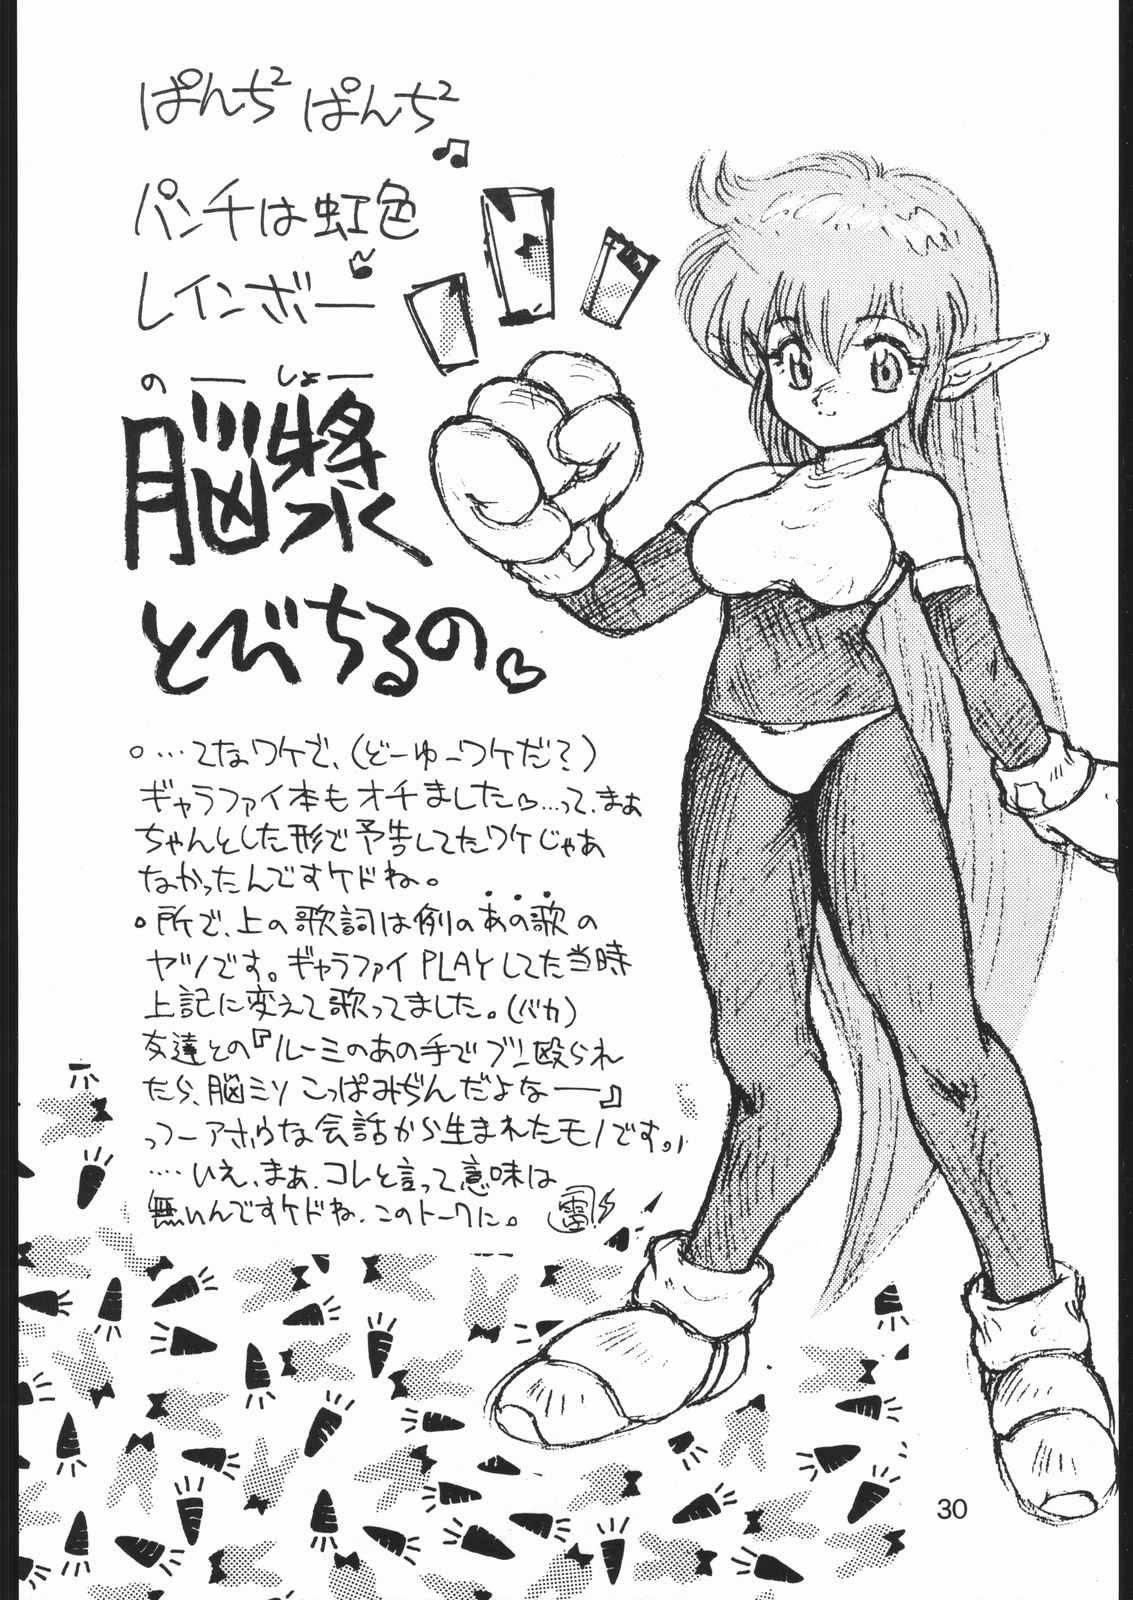 ぱんち² ぱんち²
パンチは虹色
レインボー
のーしょー
脳漿
とびちるの♡
○…てなワケで、(どーゆーワケだ?)
ギャラファイ本もオチました♡…って、まぁ
ちゃんとした形で予告してたワケじゃあ
なかったんですケドね。
○所で、上の歌詞は例のあの歌の
ヤツです。ギャラファイPLAYしてた当時
上記に変えて歌ってました。(バカ)
友達との『ルーミのあの手でブン殴られ
たら、脳ミソこっぱみぢんだよなー』
っつーアホウな会話から生まれたモノです。
…いえ、まぁ、コレと言って意味は
無いんですケドね、このトークに。
30